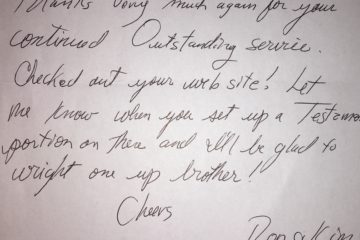 Thanks very much again for your
continued Outstanding service.
Checked out your web site! Let
me know when you set up a
portion on there and I'll be glad to
wright one up brother!
Cheers